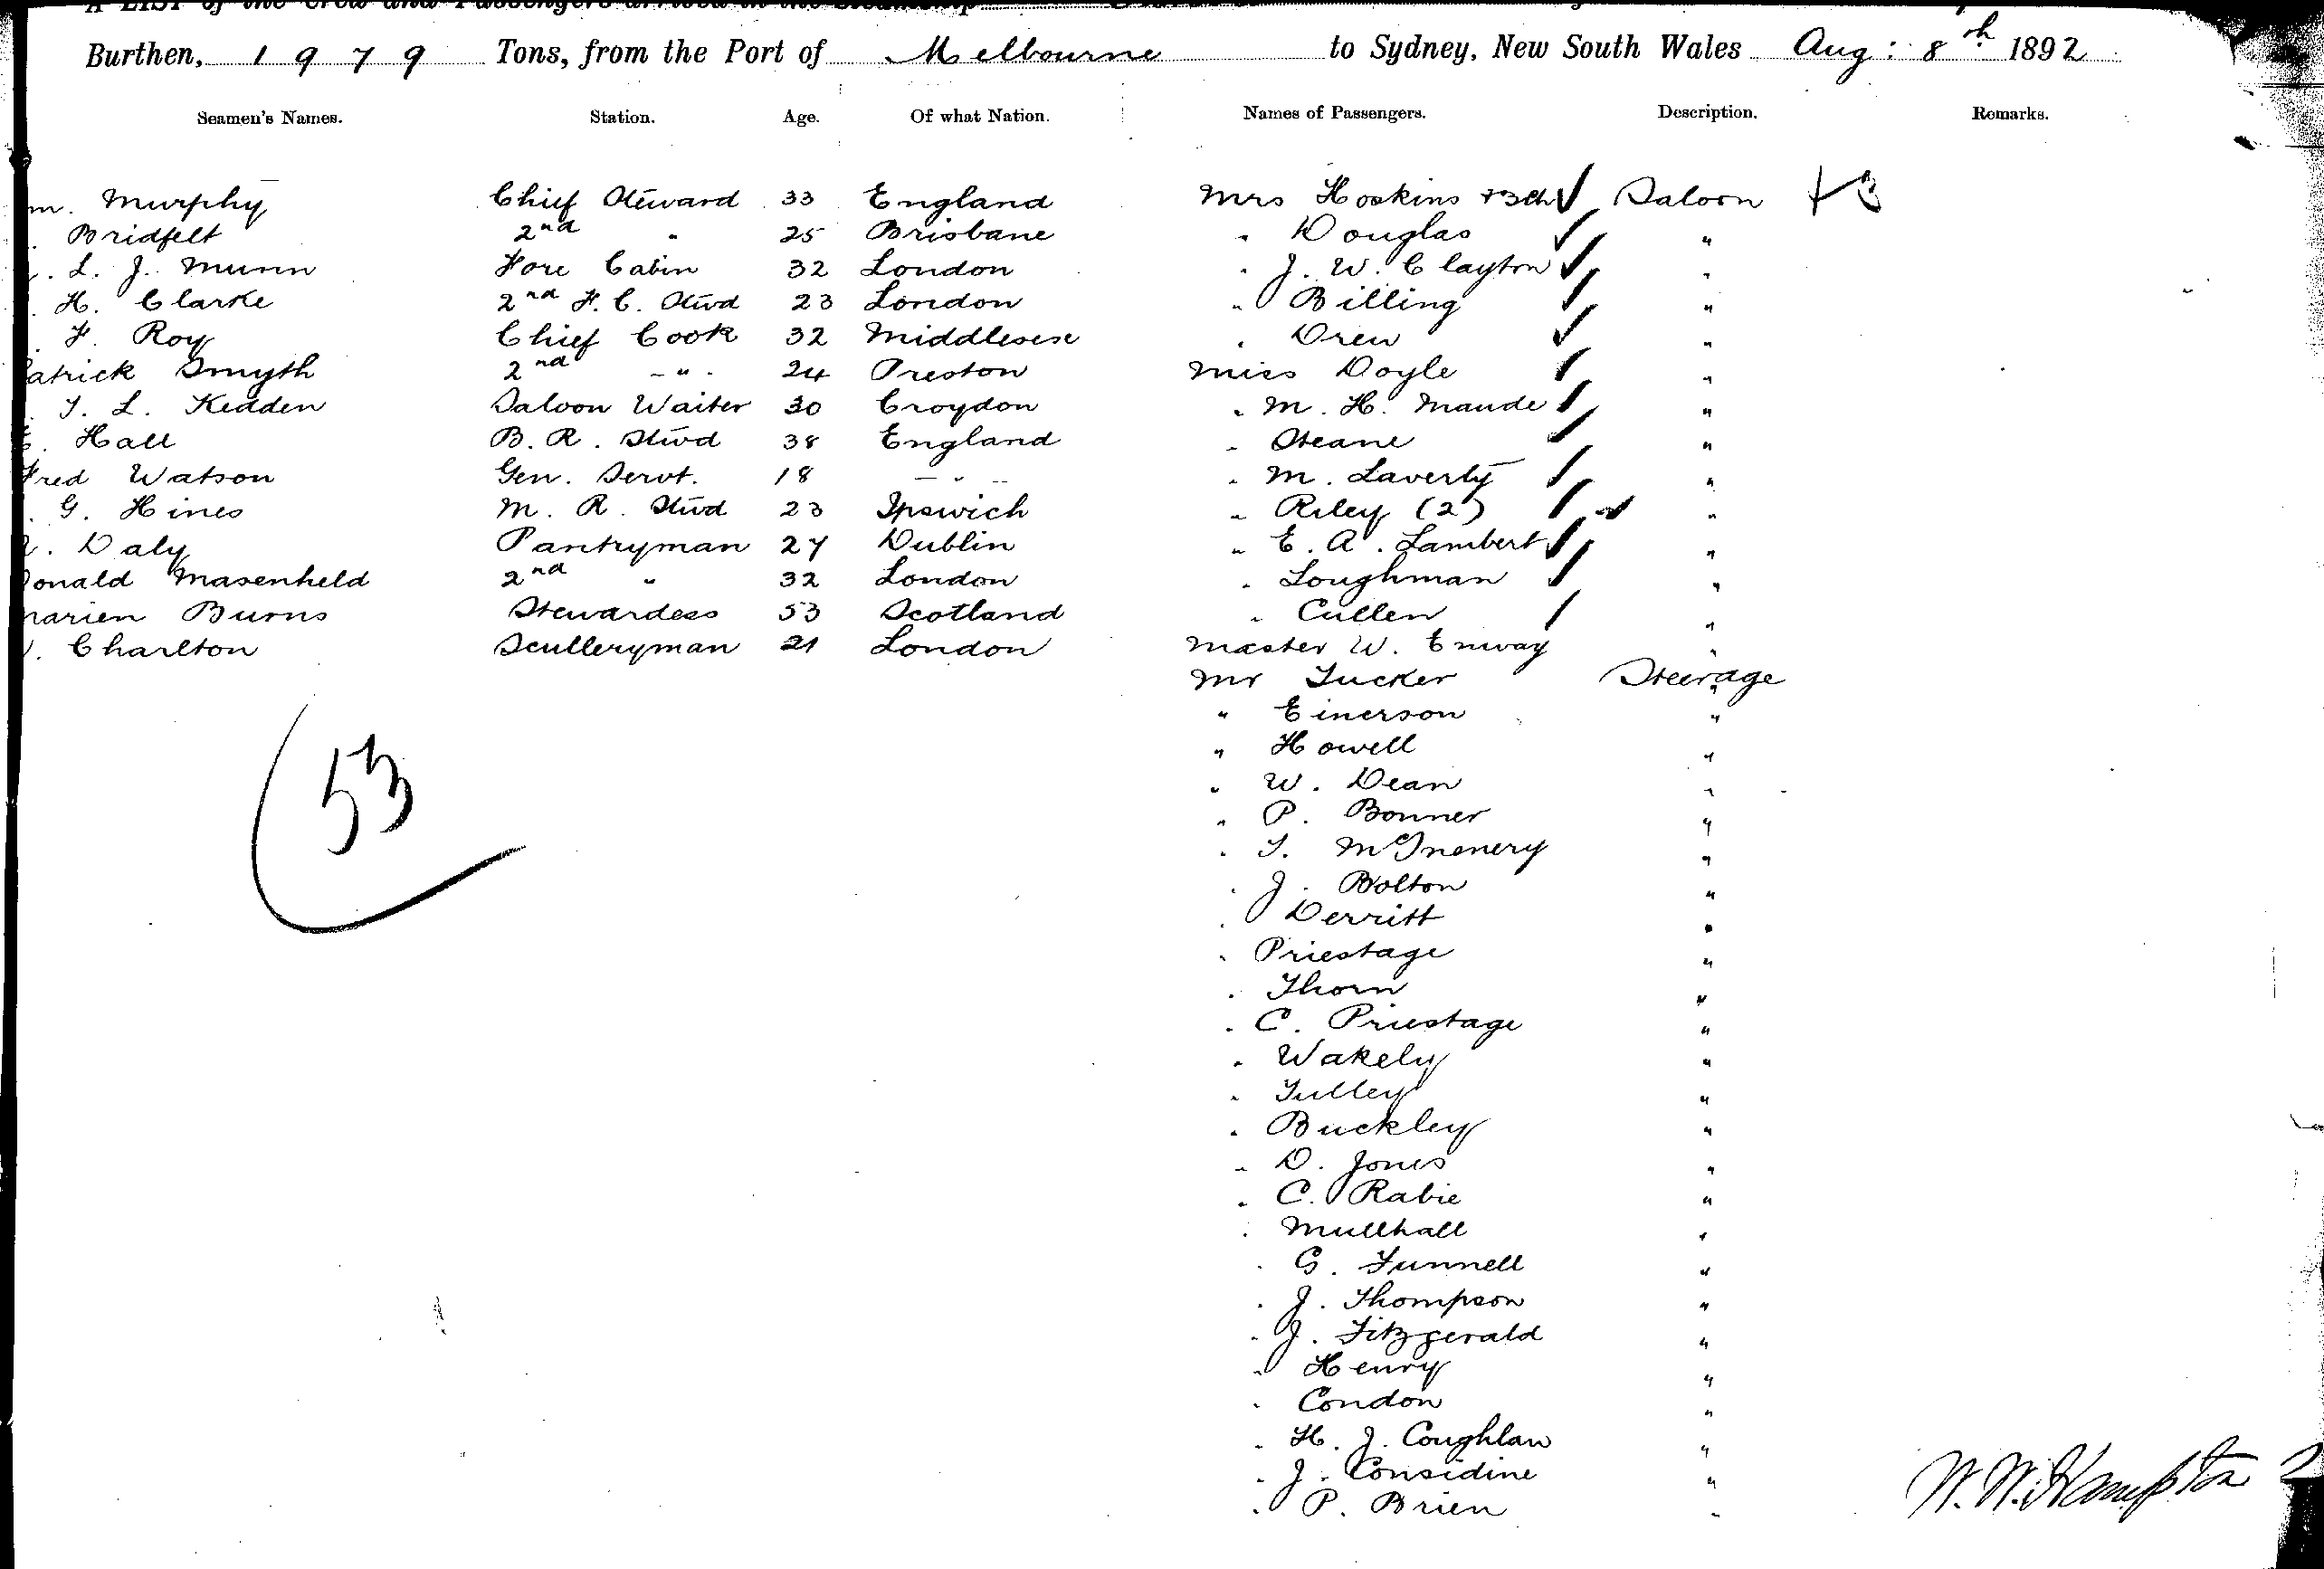 A LIST of the Crew and Passengers arrived in the Steamship
Burthen, 1979 Tons, from the Port of Melbourne to Sydney, New South Wales Aug: 8th 1892
Seamen's Names. Station. Age. Of what Nation. Names of Passengers. Description. Remarks.
m. Murphy Chief Steward 33 England Mrs Hoskins + 3 ch Saloon + 3
Bridfelt 2nd " 25 Brisbane " Douglas "
. L. J. Munn Fore Cabin 32 London " J. W. Clayton "
. H. Clarke 2nd F. C. Stwd 23 London " Billing "
. F. Roy Chief Cook 32 Middlesex " Drew "
atrick Smyth 2nd - " - 24 Preston Miss Doyle "
. T. L. Kedden Saloon Waiter 30 Croydon " M. H. Maude "
. Hall B. R. Stwd 38 England " Steane "
Fred Watson Gen. Servt. 18 - " - " M. Laverty "
. G. Hines M. R. Stwd 23 Ipswich " Riley (2) "
. Daly Pantryman 27 Dublin " E. A. Lambert "
onald Masenheld 2nd " 32 London " Loughman "
arien Burns Stewardess 53 Scotland " Cullen "
. Charlton Sculleryman 21 London Master W. Enway "
Mr Tucker Steerage
" Einerson "
" Howell "
" W. Dean "
" P. Bonner "
" T. McInenery "
" J. Bolton "
" Derritt "
" Priestage "
" Thorn "
" C. Priestage "
" Wakely "
" Tulley "
" Buckley "
" D. Jones "
" C. Rabie "
" Mullhall "
" G. Funnell "
" J. Thompson "
" J. Fitzgerald "
" Henry "
" Condon "
" H. J. Coughlan "
" J. Considine "
" P. Brien "
53
W. W. Hampton